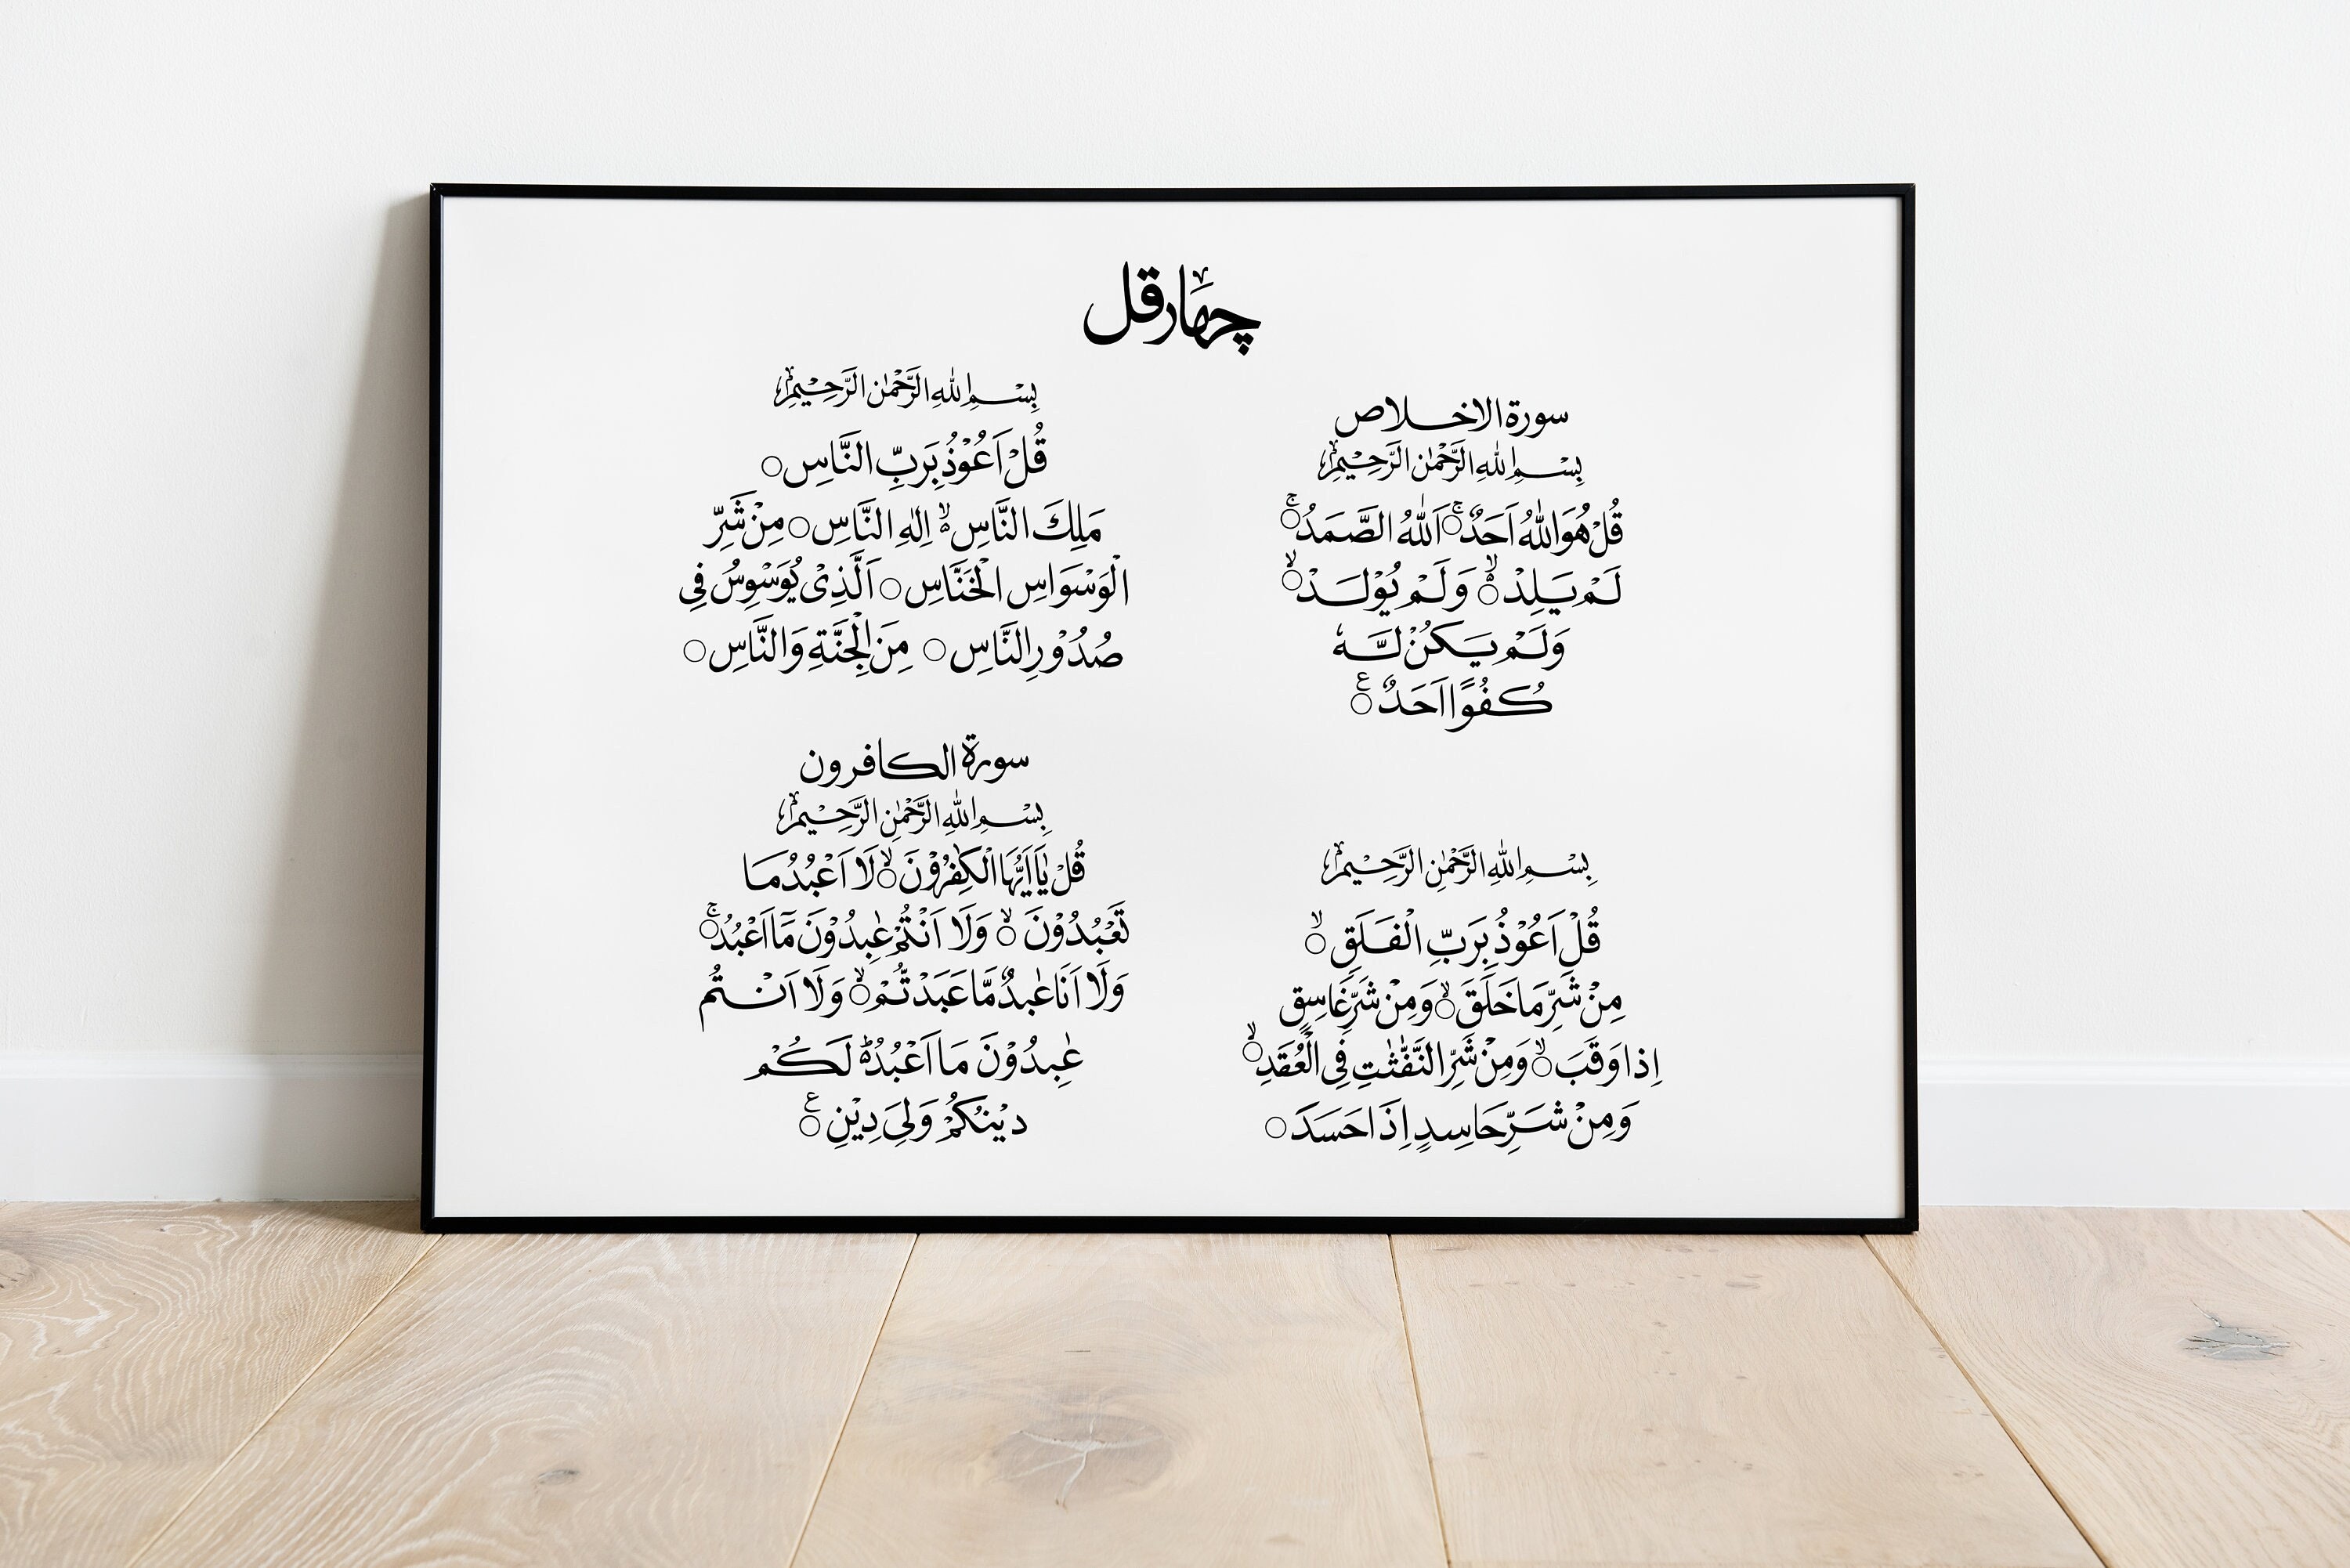 چهار قل
سورة الاخلاص
بِسْمِ اللهِ الرَّحْمٰنِ الرَّحِيْمِ
قُلْ هُوَ اللهُ اَحَدٌۚ اَللهُ الصَّمَدُۚ
لَمْ يَلِدْۙ وَلَمْ يُوْلَدْۙ
وَلَمْ يَكُنْ لَّهٗ
كُفُوًا اَحَدٌ ع
بِسْمِ اللهِ الرَّحْمٰنِ الرَّحِيْمِ
قُلْ اَعُوْذُ بِرَبِّ النَّاسِ
مَلِكِ النَّاسِۙ اِلٰهِ النَّاسِ مِنْ شَرِّ
الْوَسْوَاسِ الْخَنَّاسِ اَلَّذِىْ يُوَسْوِسُ فِى
صُدُوْرِ النَّاسِ مِنَ الْجِنَّةِ وَالنَّاسِ
بِسْمِ اللهِ الرَّحْمٰنِ الرَّحِيْمِ
قُلْ اَعُوْذُ بِرَبِّ الْفَلَقِۙ
مِنْ شَرِّ مَا خَلَقَۙ وَمِنْ شَرِّ غَاسِقٍ
اِذا وَقَبَۙ وَمِنْ شَرِّ النَّفّٰثٰتِ فِى الْعُقَدِۙ
وَمِنْ شَرِّ حَاسِدٍ اِذَا حَسَدَ
سورة الكافرون
بِسْمِ اللهِ الرَّحْمٰنِ الرَّحِيْمِ
قُلْ يٰاَيُّهَا الْكٰفِرُوْنَۙ لَا اَعْبُدُ مَا
تَعْبُدُوْنَۙ وَلَا اَنْتُمْ عٰبِدُوْنَ مَا اَعْبُدُۚ
وَلَا اَنَا عٰبِدٌ مَّا عَبَدْتُّمْۙ وَلَا اَنْتُم
عٰبِدُوْنَ مَا اَعْبُدُؕ لَكُمْ
دِيْنُكُمْ وَلِىَ دِيْنِ ع